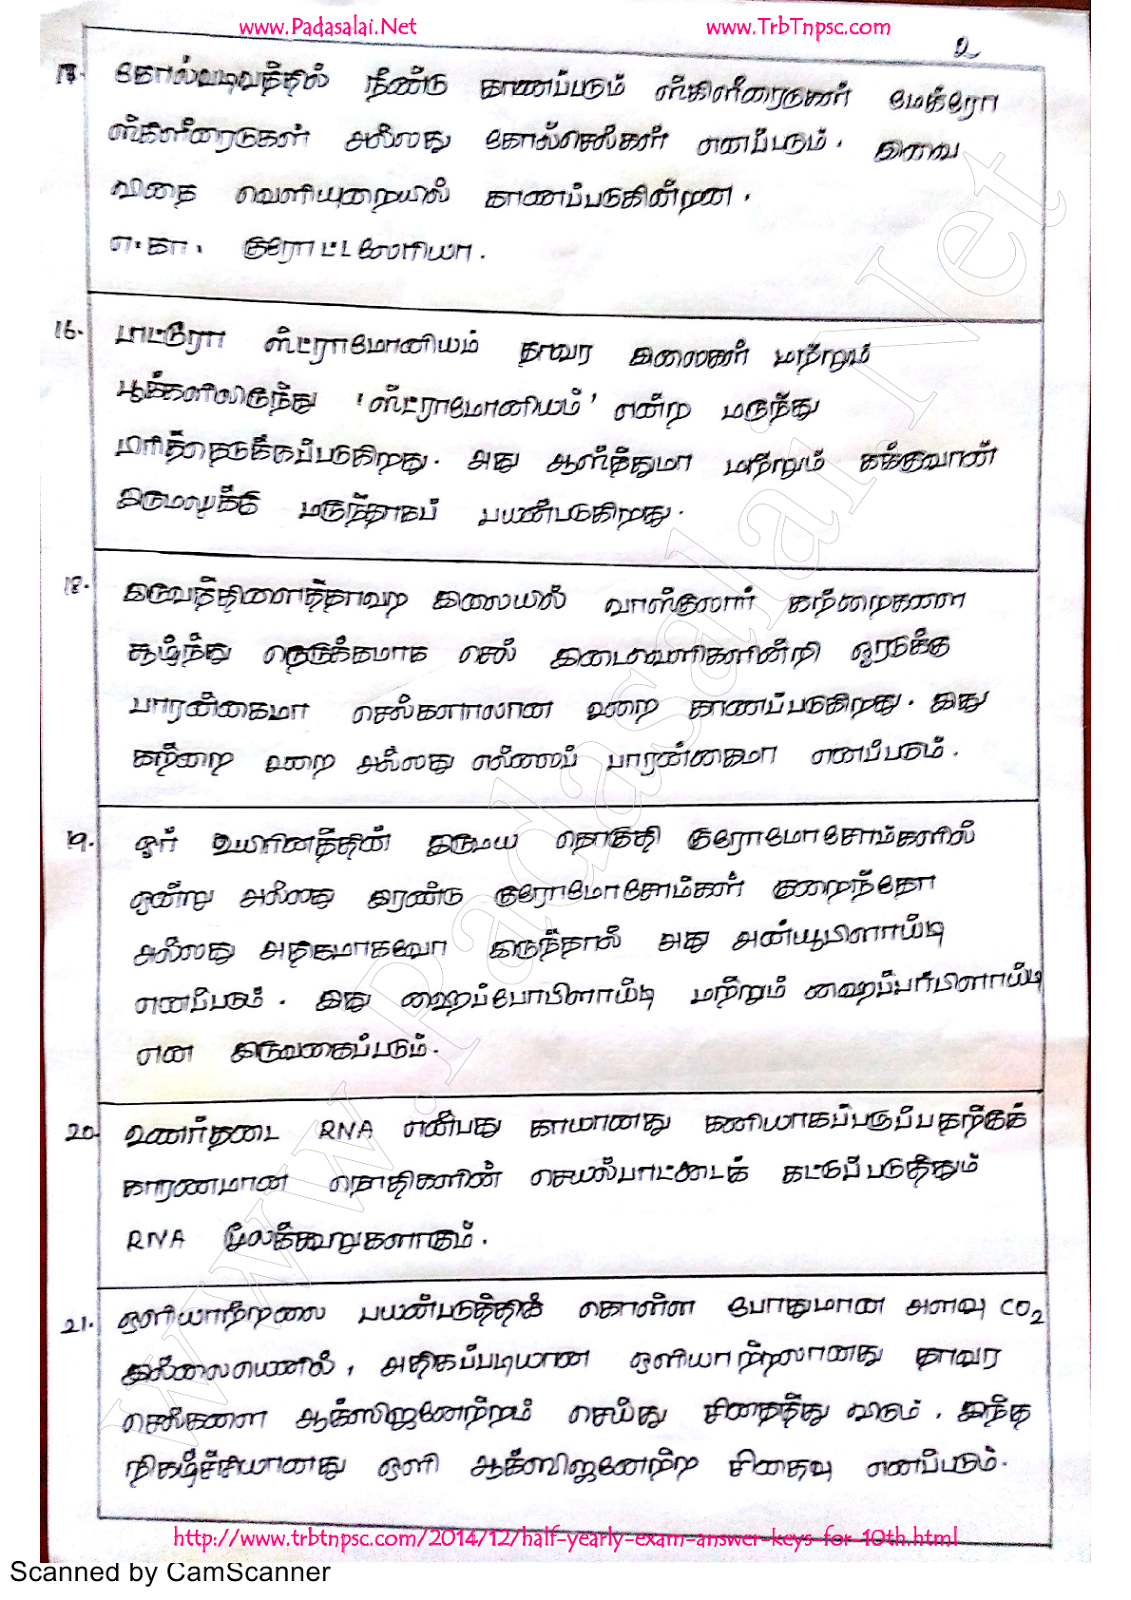 www.Padasalai.Net
www.TrbTnpsc.com
2
17. கோல்வடிவத்தில் நீண்டு காணப்படும் ஸ்கிளீரைடுகள் மேக்ரோ
ஸ்கிளீரைடுகள் அல்லது கோல்செல்கள் எனப்படும். இவை
விதை வெளியுறையில் காணப்படுகின்றன.
எ.கா. குரோட்டலேரியா.
16. டாட்டூரா ஸ்ட்ராமோனியம் தாவர இலைகள் மற்றும்
பூக்களிலிருந்து 'ஸ்ட்ராமோனியம்' என்ற மருந்து
பிரித்தெடுக்கப்படுகிறது. அது ஆஸ்த்துமா மற்றும் கக்குவான்
இருமலுக்கு மருந்தாகப் பயன்படுகிறது.
18. இருவித்திலைத்தாவர இலையில் வாஸ்குலார் கற்றைகளை
சூழ்ந்து நெருக்கமாக செல் இடைவெளிகளின்றி ஓரடுக்கு
பாரன்கைமா செல்களாலான உறை காணப்படுகிறது. இது
கற்றை உறை அல்லது எல்லைப் பாரன்கைமா எனப்படும்.
19. ஓர் உயிரினத்தின் இருமய தொகுதி குரோமோசோம்களில்
ஒன்று அல்லது இரண்டு குரோமோசோம்கள் குறைந்தோ
அல்லது அதிகமாகவோ இருந்தால் அது அன்யூபிளாய்டி
எனப்படும். இது ஹைப்போபிளாய்டி மற்றும் ஹைப்பர்பிளாய்டி
என இருவகைப்படும்.
20. உணர்தடை RNA என்பது காயானது கனியாகப்பழுப்பதற்குக்
காரணமான நொதிகளின் செயல்பாட்டைக் கட்டுப்படுத்தும்
RNA மூலக்கூறுகளாகும்.
21. ஒளியாற்றலை பயன்படுத்திக் கொள்ள போதுமான அளவு CO2
இல்லையெனில், அதிகப்படியான ஒளியாற்றலானது தாவர
செல்களை ஆக்ஸிஜனேற்றம் செய்து சிதைத்து விடும். இந்த
நிகழ்ச்சியானது ஒளி ஆக்ஸிஜனேற்ற சிதைவு எனப்படும்.
http://www.trbtnpsc.com/2014/12/half-yearly-exam-answer-keys-for-10th.html
Scanned by CamScanner
www.Padasalai.Net